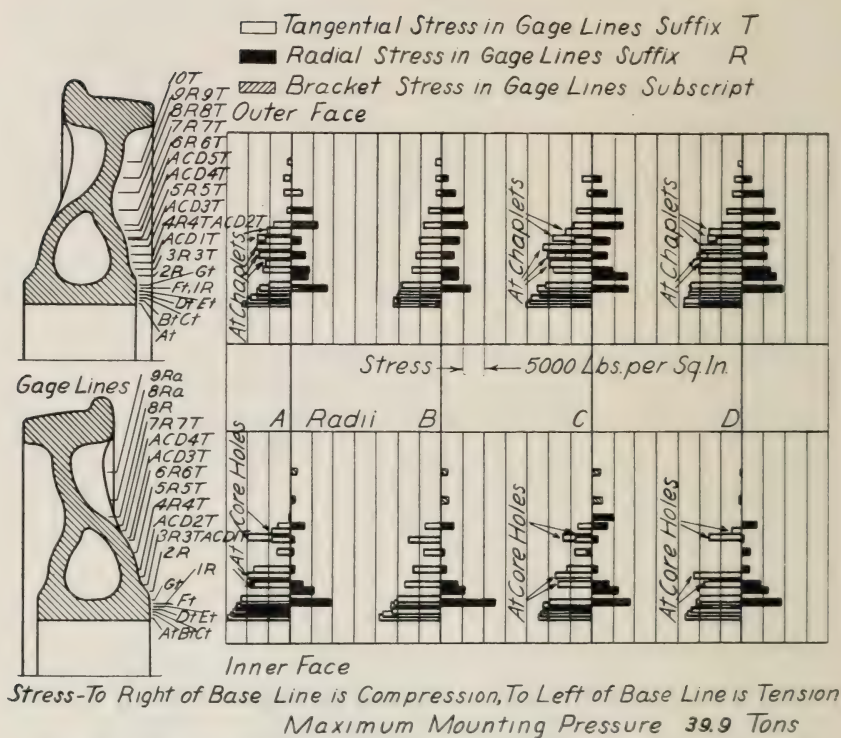 Tangential Stress in Gage Lines Suffix T
Radial Stress in Gage Lines Suffix R
Bracket Stress in Gage Lines Subscript
Outer Face
10T
9R9T
8R8T
7R7T
6R6T
ACD5T
ACD4T
5R5T
ACD3T
4R4TACD2T
ACD1T
3R3T
2R Gt
Ft,1R
DtEt
BtCt
At
At Chaplets
At Chaplets
At Chaplets
Stress 5000 Lbs.per Sq.In.
Gage Lines
A Radii B C D
9Ra
8Ra
8R
7R7T
ACD4T
ACD3T
6R6T
5R5T
4R4T
ACD2T
3R3TACD1T
2R
1R
Gt
Ft
DtEt
AtBtCt
At Core Holes
At Core Holes
At Core Holes
Inner Face
Stress-To Right of Base Line is Compression,To Left of Base Line is Tension
Maximum Mounting Pressure 39.9 Tons